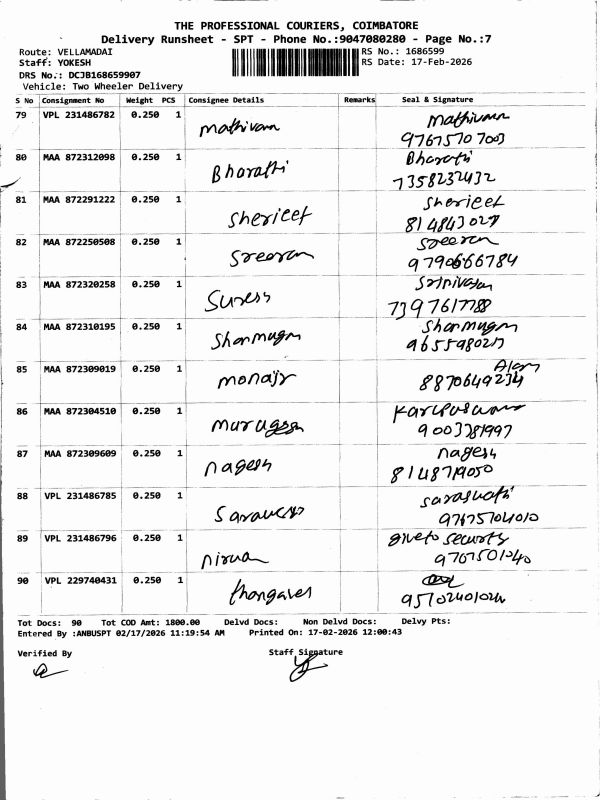 THE PROFESSIONAL COURIERS, COIMBATORE
Delivery Runsheet - SPT - Phone No.:9047080280 - Page No.:7
Route: VELLAMADAI RS No.: 1686599
Staff: YOKESH RS Date: 17-Feb-2026
DRS No.: DCJB168659907
Vehicle: Two Wheeler Delivery
S No Consignment No Weight PCS Consignee Details Remarks Seal & Signature
79 VPL 231486782 0.250 1 Mathivan Mathivan
9767570 7003
80 MAA 872312098 0.250 1 Bharathi Bharathi
7358232432
81 MAA 872291222 0.250 1 Shericef Shericef
814843027
82 MAA 872250508 0.250 1 Sreeran Sreeran
9790666784
83 MAA 872320258 0.250 1 Suress Srinivasan
7397617788
84 MAA 872310195 0.250 1 Shanmugam Shanmugam
9655980217
85 MAA 872309019 0.250 1 monajr
8870649234
86 MAA 872304510 0.250 1 murugesn
9003781997
87 MAA 872309609 0.250 1 nagesh nagesh
8148719050
88 VPL 231486785 0.250 1 saraswathi
9767570401０
89 VPL 231486796 0.250 1 give to security
9767501040
90 VPL 229740431 0.250 1 thangavel
9510240102４
Tot Docs: 90 Tot COD Amt: 1800.00 Delvd Docs: Non Delvd Docs: Delvy Pts:
Entered By :ANBUSPT 02/17/2026 11:19:54 AM Printed On: 17-02-2026 12:00:43
Verified By Staff Signature